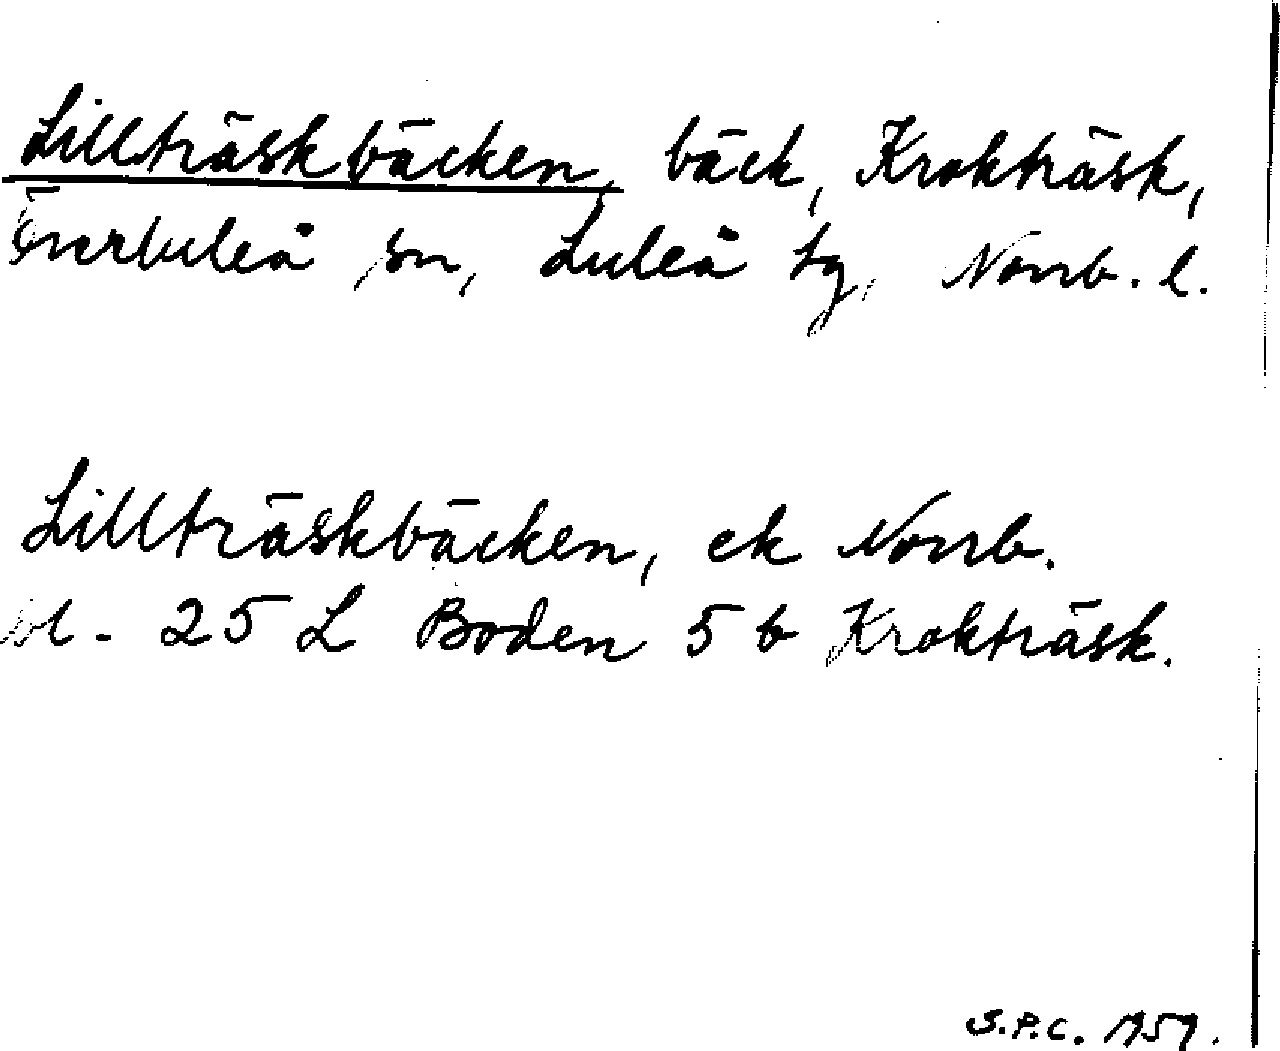 Lillträskbäcken, bäck, Krokträsk,
Överluleå sn, Luleå tg, Norrb. l.
Lillträskbäcken, ek Norrb.
bl. 25 L Boden 5 b Krokträsk.
S.P.C. 1959.